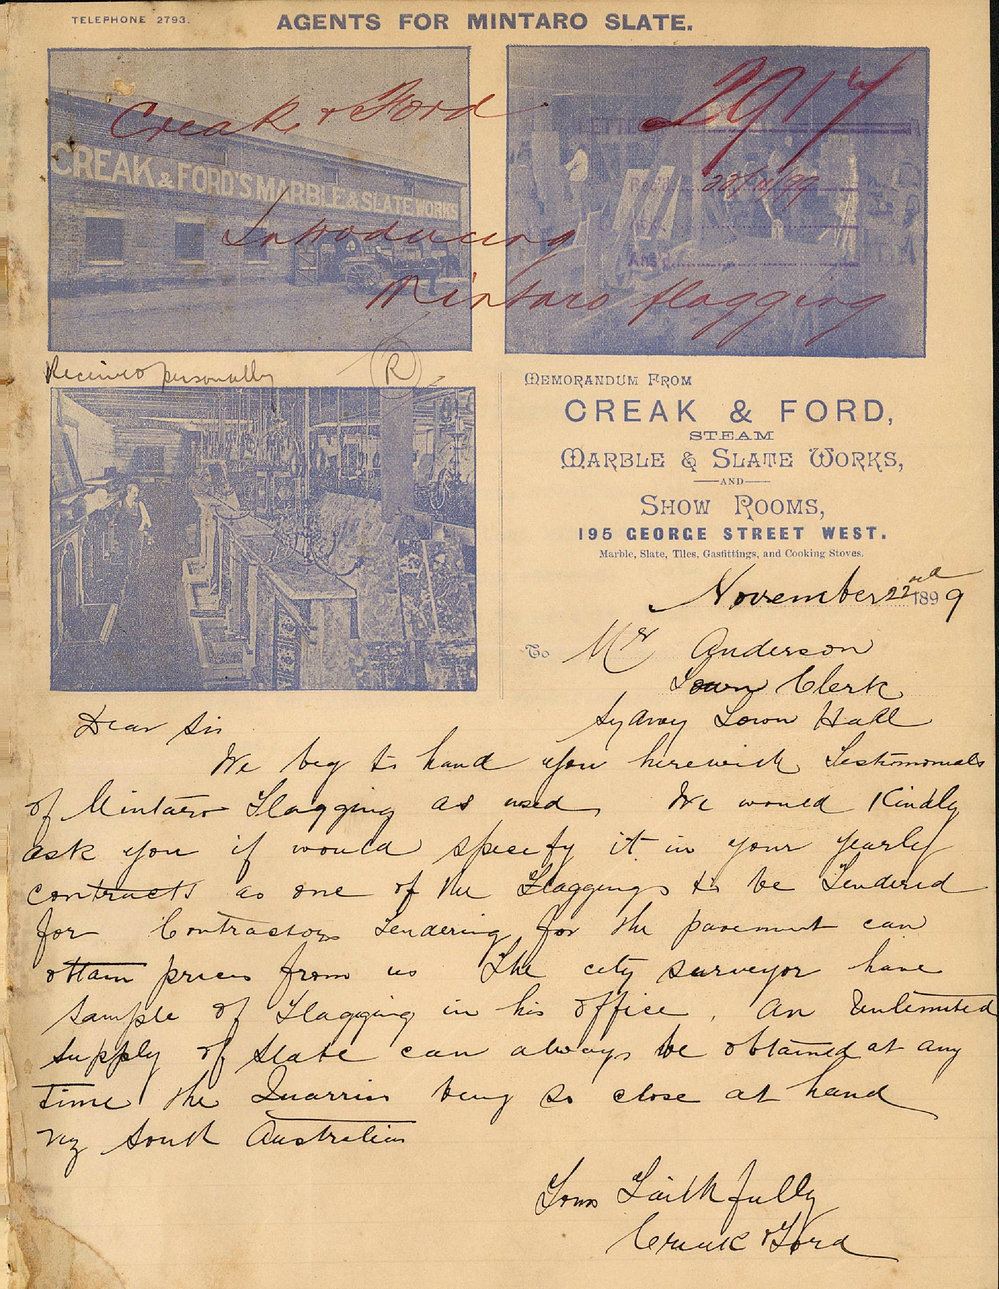 TELEPHONE 2793.
AGENTS FOR MINTARO SLATE.
Creak & Ford
2917
CREAK & FORD'S MARBLE & SLATE WORKS
Rec'd 22/11/99
Introducing
Ans'd
Mintaro flagging
Received personally
R
MEMORANDUM FROM
CREAK & FORD,
STEAM
MARBLE & SLATE WORKS,
AND
SHOW ROOMS,
195 GEORGE STREET WEST.
Marble, Slate, Tiles, Gasfittings, and Cooking Stoves.
November 22nd 1899
To Mr Anderson
Town Clerk
Sydney Town Hall
Dear Sir
We beg to hand you herewith Testimonials
of Mintaro Flagging as used We would Kindly
ask you if would specefy it in your yearly
contracts as one of the Flaggings to be Tendered
for Contractors Tendering for the pavement can
ottain prices from us The city surveyor have
sample of Flagging in his office. An Unlimited
supply of slate can always be obtained at any
time the Quarries being so close at hand
viz South Australian
Yours Faithfully
Creak & Ford